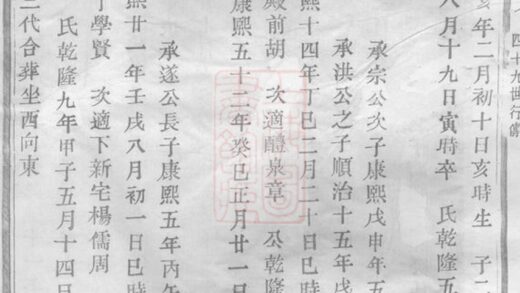 四十九世行
亥年二月初十日亥時生 子二
八月十九日寅時卒 氏乾隆五
承宗公次子康熙戊申年五
承洪公之子順治十五年戊
熙十四年丁巳二月二十日巳時
殿前胡 次適醴泉章 公乾隆
康熙五十二年癸巳正月廿一日
承遂公長子康熙五年丙午
熙廿一年壬戌八月初一日巳時
學賢 次適下新宅楊儒周
氏乾隆九年甲子五月十四日
二代合葬坐西向東